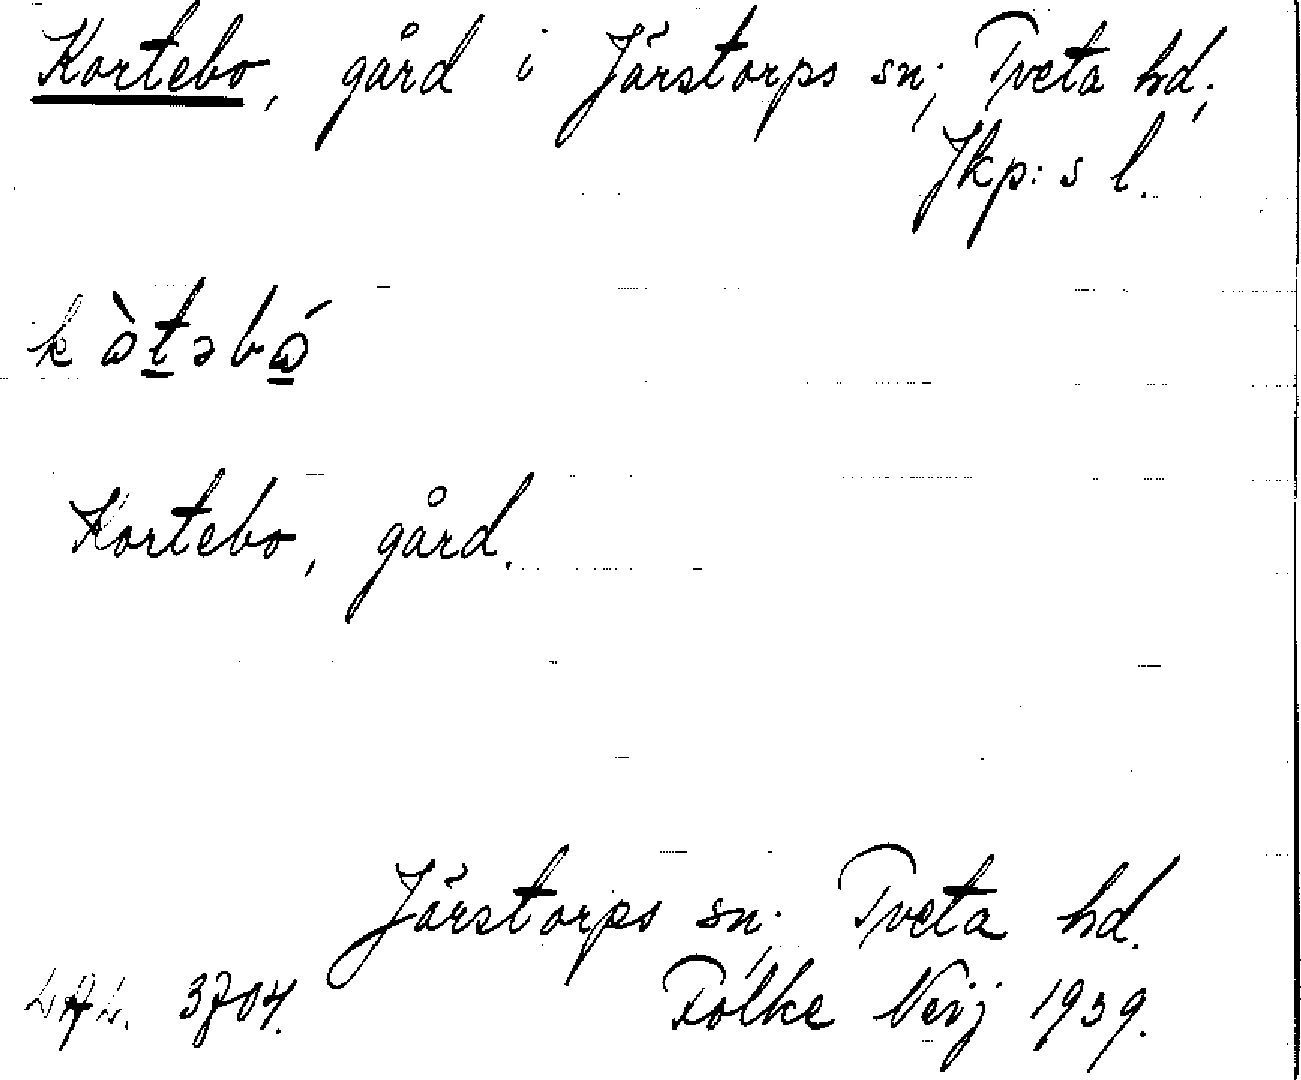 Kortebo, gård i Järstorps sn; Tveta hd;
Jkp:s l.
kòtəbó
Kortebo, gård.
Järstorps sn; Tveta hd.
3704. Folke 1939.